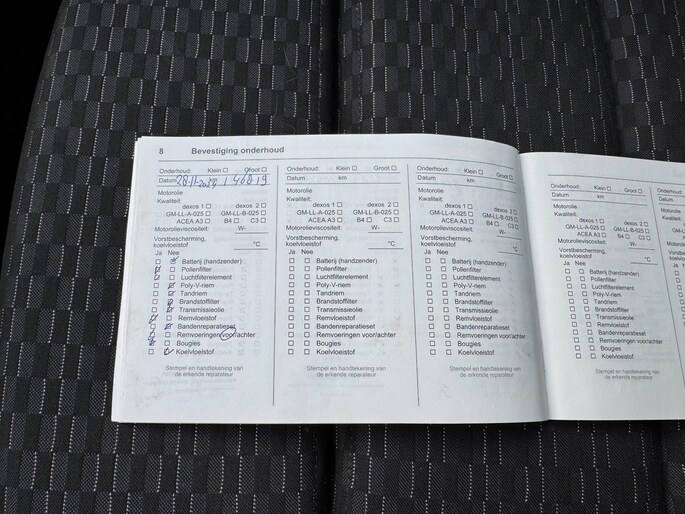 8 Bevestiging onderhoud
Onderhoud: Klein ☐ Groot ☐
Datum 28-11-2024 km 146819
Motorolie
Kwaliteit:
dexos 1 ☐ dexos 2 ☐
GM-LL-A-025 ☐ GM-LL-B-025 ☐
ACEA A3 ☐ B4 ☐ C3 ☐
Motorolieviscositeit: W-
Vorstbescherming,
koelvloeistof °C
Ja Nee
Batterij (handzender)
Pollenfilter
Luchtfilterelement
Poly-V-riem
Tandriem
Brandstoffilter
Transmissieolie
Remvloeistof
Bandenreparatieset
Remvoeringen voor/achter
Bougies
Koelvloeistof
Stempel en handtekening van
de erkende reparateur
Onderhoud: Klein ☐ Groot ☐
Datum km
Motorolie
Kwaliteit:
dexos 1 ☐ dexos 2 ☐
GM-LL-A-025 ☐ GM-LL-B-025 ☐
ACEA A3 ☐ B4 ☐ C3 ☐
Motorolieviscositeit: W-
Vorstbescherming,
koelvloeistof °C
Ja Nee
☐ ☐ Batterij (handzender)
☐ ☐ Pollenfilter
☐ ☐ Luchtfilterelement
☐ ☐ Poly-V-riem
☐ ☐ Tandriem
☐ ☐ Brandstoffilter
☐ ☐ Transmissieolie
☐ ☐ Remvloeistof
☐ ☐ Bandenreparatieset
☐ ☐ Remvoeringen voor/achter
☐ ☐ Bougies
☐ ☐ Koelvloeistof
Stempel en handtekening van
de erkende reparateur
Onderhoud: Klein ☐ Groot ☐
Datum km
Motorolie
Kwaliteit:
dexos 1 ☐ dexos 2 ☐
GM-LL-A-025 ☐ GM-LL-B-025 ☐
ACEA A3 ☐ B4 ☐ C3 ☐
Motorolieviscositeit: W-
Vorstbescherming,
koelvloeistof °C
Ja Nee
☐ ☐ Batterij (handzender)
☐ ☐ Pollenfilter
☐ ☐ Luchtfilterelement
☐ ☐ Poly-V-riem
☐ ☐ Tandriem
☐ ☐ Brandstoffilter
☐ ☐ Transmissieolie
☐ ☐ Remvloeistof
☐ ☐ Bandenreparatieset
☐ ☐ Remvoeringen voor/achter
☐ ☐ Bougies
☐ ☐ Koelvloeistof
Stempel en handtekening van
de erkende reparateur
Onderhoud: Klein ☐ Groot ☐
Datum km
Motorolie
Kwaliteit:
dexos 1 ☐ dexos 2 ☐
GM-LL-A-025 ☐ GM-LL-B-025 ☐
ACEA A3 ☐ B4 ☐ C3 ☐
Motorolieviscositeit: W-
Vorstbescherming,
koelvloeistof °C
Ja Nee
☐ ☐ Batterij (handzender)
☐ ☐ Pollenfilter
☐ ☐ Luchtfilterelement
☐ ☐ Poly-V-riem
☐ ☐ Tandriem
☐ ☐ Brandstoffilter
☐ ☐ Transmissieolie
☐ ☐ Remvloeistof
☐ ☐ Bandenreparatieset
☐ ☐ Remvoeringen voor/achter
☐ ☐ Bougies
☐ ☐ Koelvloeistof
Stempel en handtekening van
de erkende reparateur